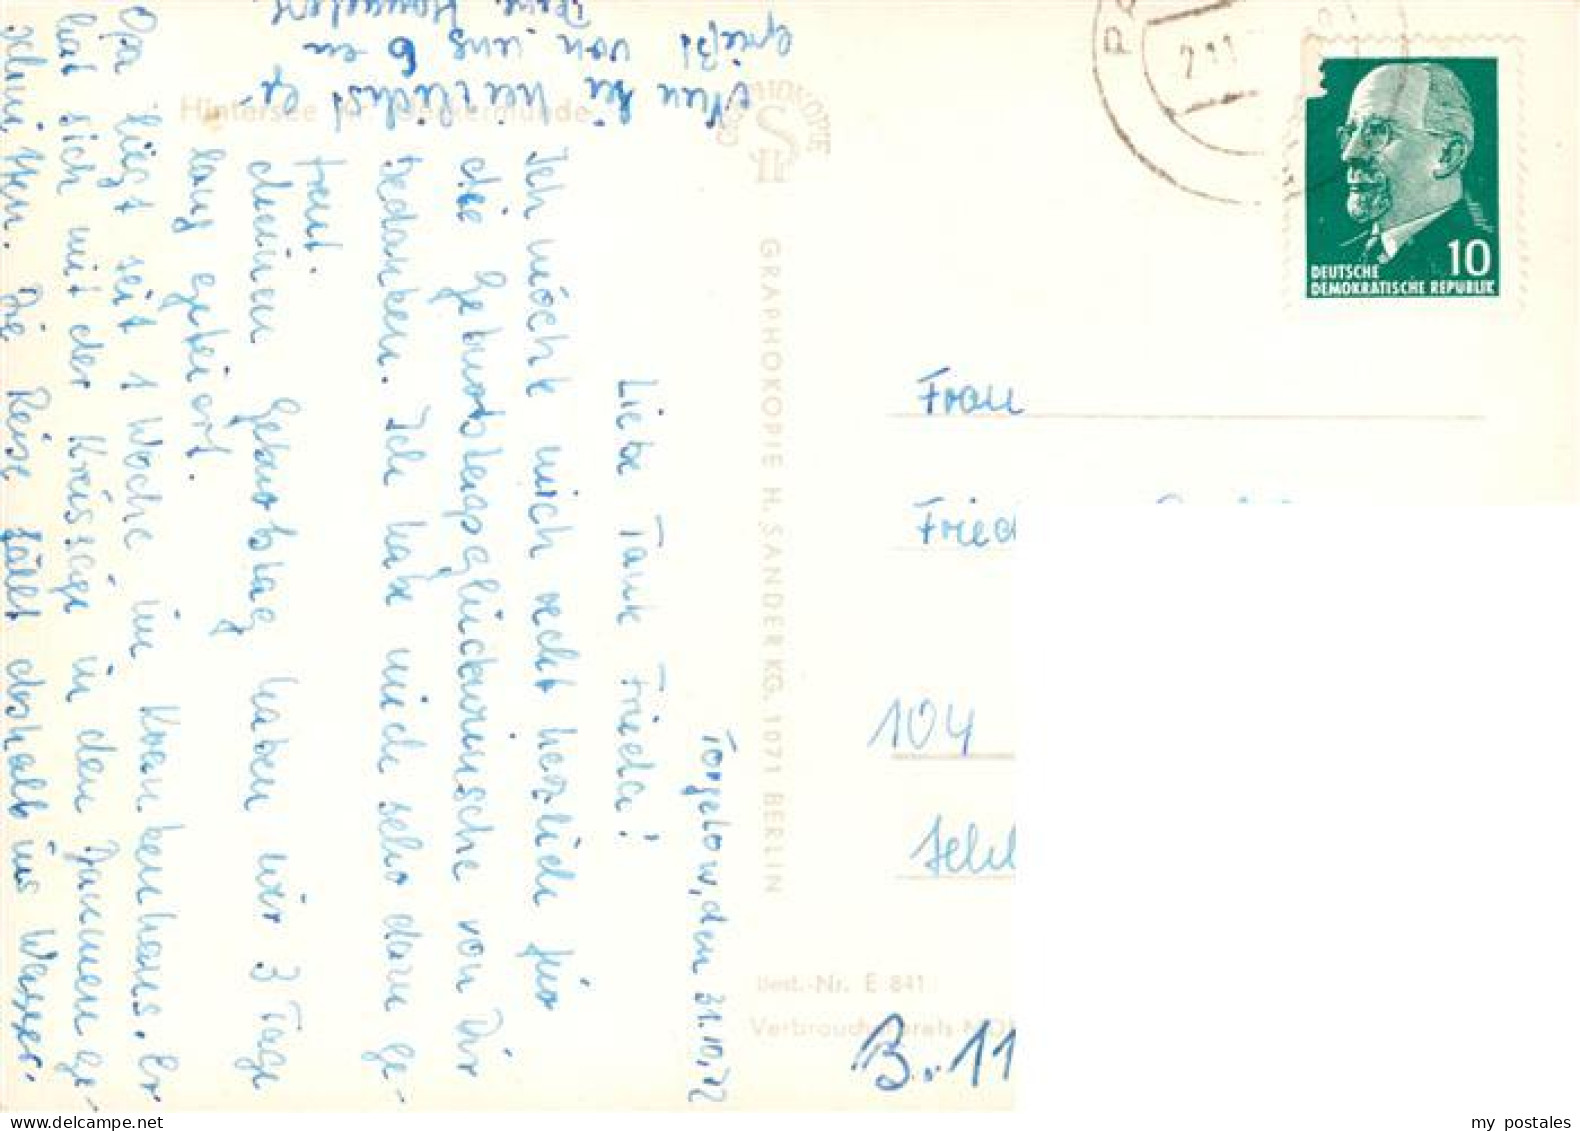 Torgelow, den 31.10.72
Liebe Tante Frieda!
Ich möchte mich recht herzlich für
die Geburtstagsglückwünsche von Dir
bedanken. Ich habe mich sehr darü ge-
freut.
deinem Geburtstag haben wir 3 Tage
lang gefeiert.
Opa liegt seit 1 Woche im Krankenhaus. Er
hat sich mit der Kreissäge in den Daumen ge-
schnitten. Die Reise fällt deshalb ins Wasser.
Nun sei herzlichst ge-
grüßt von uns 6 en
Deine
Hintersee
GRAPHOKOPIE H. SANDER KG. 1071 BERLIN
Best.-Nr. E 841
Verbraucherpreis MDN
10
DEUTSCHE
DEMOKRATISCHE REPUBLIK
Frau
Fried
104
B.. 11
my postales